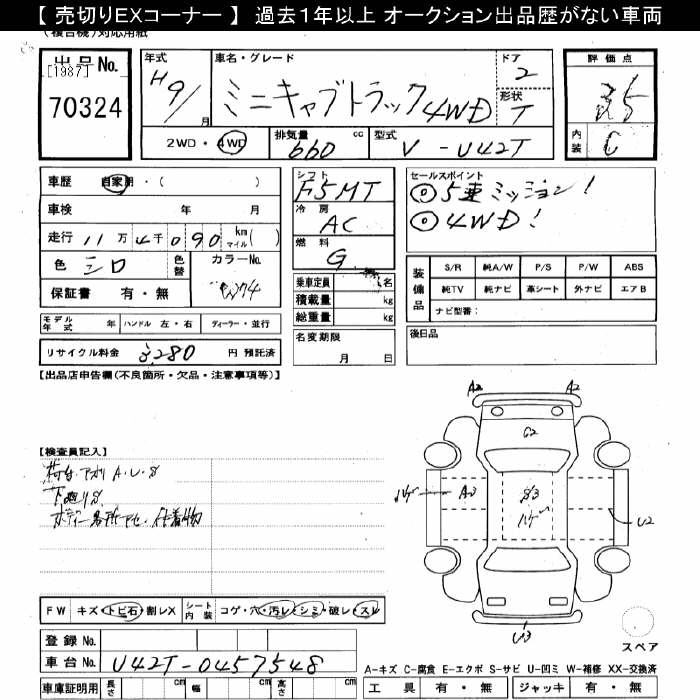 【 売切りEXコーナー 】 過去1年以上 オークション出品歴がない車両
(複合機)対応用紙
出品No.
[1987]
70324
年式
H9/
月
車名・グレード
ミニキャブトラック4WD
ドア
2
形状
T
評価点
3.5
内装
C
2WD・4WD
排気量
660
cc
型式
V-U42T
車歴 自家用・( )
車検 年 月
走行 11万4千090 km マイル( )
色 シロ 色替 カラーNo.
保証書 有・無
シフト
F5MT
冷房
AC
燃料
G
乗車定員 名
積載量 kg
総重量 kg
セールスポイント
◎5速ミッション!
◎4WD!
装備品
S/R 純A/W P/S P/W ABS
純TV 純ナビ 革シート 外ナビ エアB
ナビ型番:
モデル年式 年 ハンドル 左・右 ディーラー・並行
名変期限
月 日
後日品
リサイクル料金 円 預託済
【出品店申告欄(不良箇所・欠品・注意事項等)】
【検査員記入】
荷台・アオリ A・U・S
下廻りS
A2
A2
G2
A3
ハゲ
U2
U3
FW キズ・トビ石・割レX シート内装 コゲ・穴・汚レ・シミ・破レ・スレ
登録No.
車台No. U42T-0457548
車庫証明用 長さ cm 幅 cm 高さ cm
スペア
A-キズ C-腐食 E-エクボ S-サビ U-凹ミ W-補修 XX-交換済
工具 有・無 ジャッキ 有・無